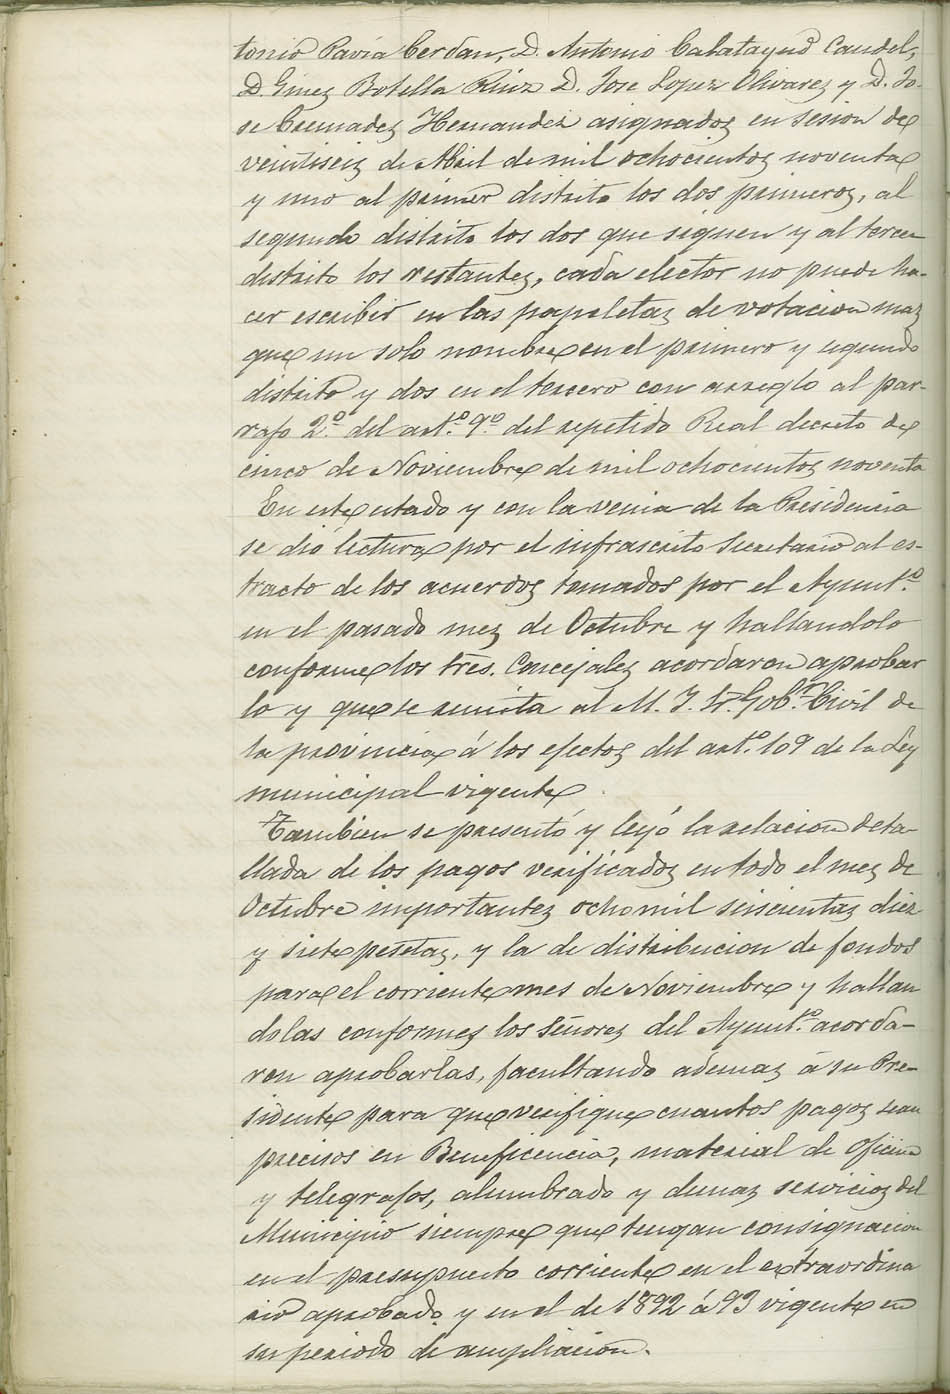 tonio Pavia Cerdan, D. Antonio Calatayud Candel,
D. Ginez Botella Ruiz D. Jose Lopez Olivarez y D. Jo-
se Cremadez Hernandez asignadoz en sesion de
veintiseiz de Abril de mil ochocientoz noventa
y uno al primer distrito los dos primeroz, al
segundo distrito los dos que siguen y al tercer
distrito los restantez, cada elector no puede ha-
cer escribir en las papeletaz de votacion maz
que un solo nombre en el primero y segundo
distrito y dos en el tercero con arreglo al par-
rafo 2.º del art.º 9.º del repetido Real decreto de
cinco de Noviembre de mil ochocientoz noventa
En este estado y con la venia de la Presidencia
se dió lectura por el infrascrito Secretario al es-
tracto de los acuerdoz tomados por el Ayunt.º
en el pasado mez de Octubre y hallandolo
conforme los Sres. Concejalez acordaron aprobar
lo y que se remita al M. I. Sr. Gob.r Civil de
la provincia á los efectoz del art.º 109 de la Ley
municipal vigente.
Tambien se presentó y leyó la relacion deta-
llada de los pagos verificadoz en todo el mez de
Octubre importantez ocho mil seiscientaz diez
y siete pesetaz, y la de distribucion de fondos
para el corriente mes de Noviembre y hallan
dolas conformez los Señorez del Ayunt.º acorda-
ron aprobarlas, facultando ademaz á su Pre-
sidente para que verifique cuantos pagoz sean
precisos en Beneficencia, material de oficina
y telegrafos, alumbrado y demaz servicioz del
Municipio siempre que tengan consignacion
en el presupuesto corriente en el extraordina
rio aprobado y en el de 1892 á 93 vigente en
su periodo de ampliacion.